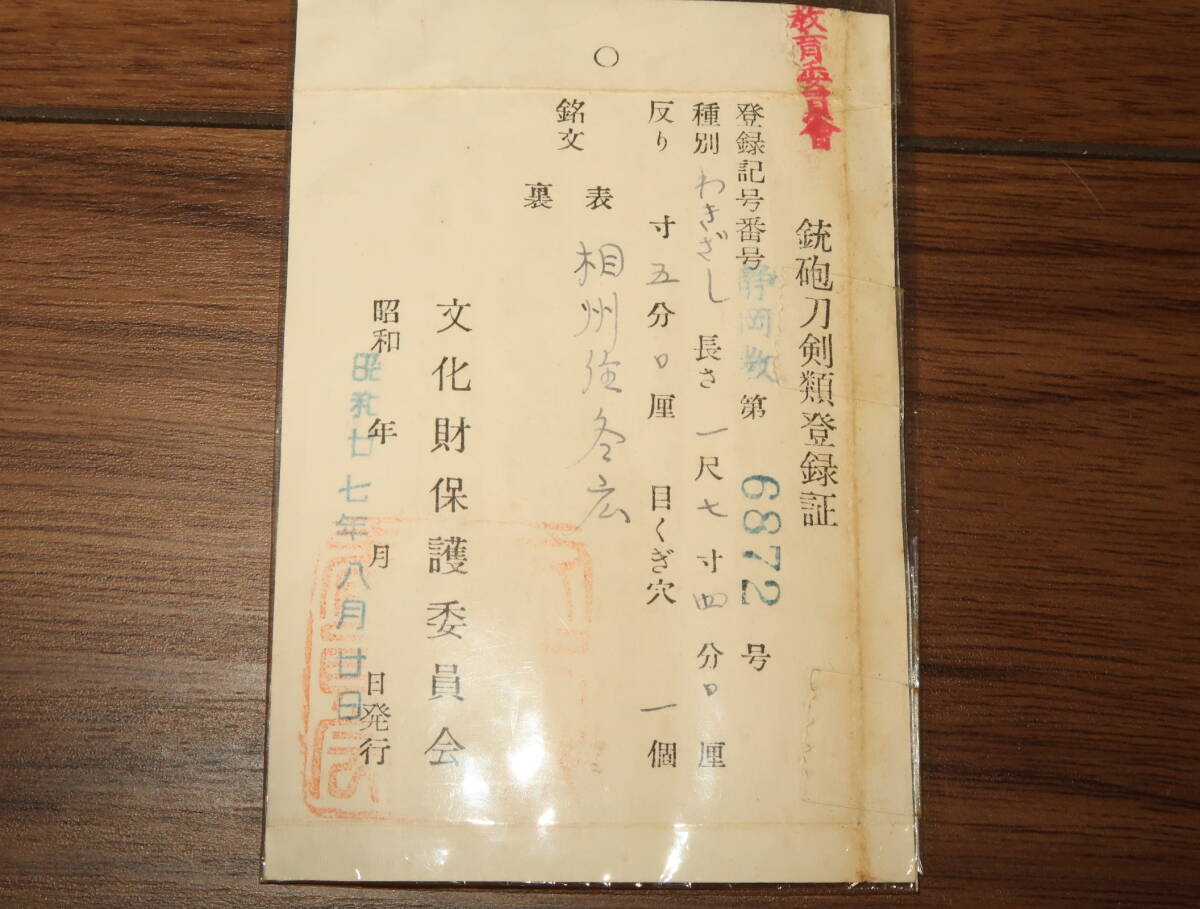 教育委員會
銃砲刀剣類登録証
登録記号番号 静岡教 第 6872 号
種別 わきざし 長さ 一尺七寸四分0厘
反り 寸五分0厘 目くぎ穴 一個
銘文 表 相州住冬広
裏
文化財保護委員会
昭和 年 月 日発行
昭和廿七年八月廿日